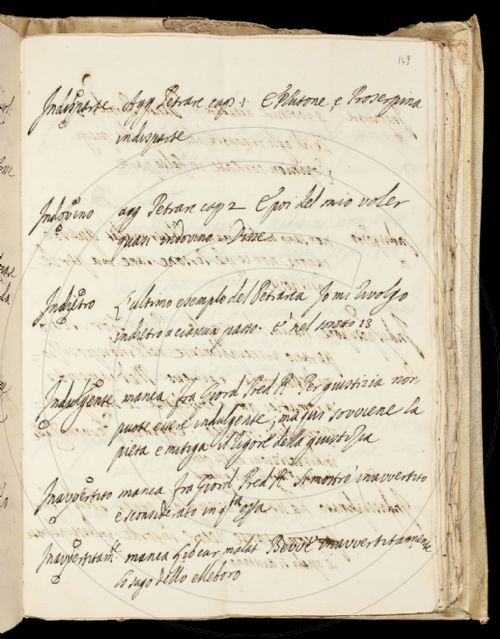 149
Indisparte. Agg Petrarc cap 1 E Plutone, e Proserpina
indisparte
Indovino agg Petrarc cap 2 E poi del mio voler
quasi indovino. Disse
Indietro L'ultimo esempio del Petrarca Jo mi Rivolgo
indietro a ciascun passo. e' nel sonetto 13
Indulgente manca fra Giord Pred R. Per giustizia non
puote essere indulgente, ma sovviene la
pieta e mitiga il rigore della giustizia
Inavvertito manca fra Giord Pred R. Si mostrò inavvertito
e sconsiderato in
Inavvertitamte. manca malat Bevve inavvertitamente
lo sugo dello elleboro